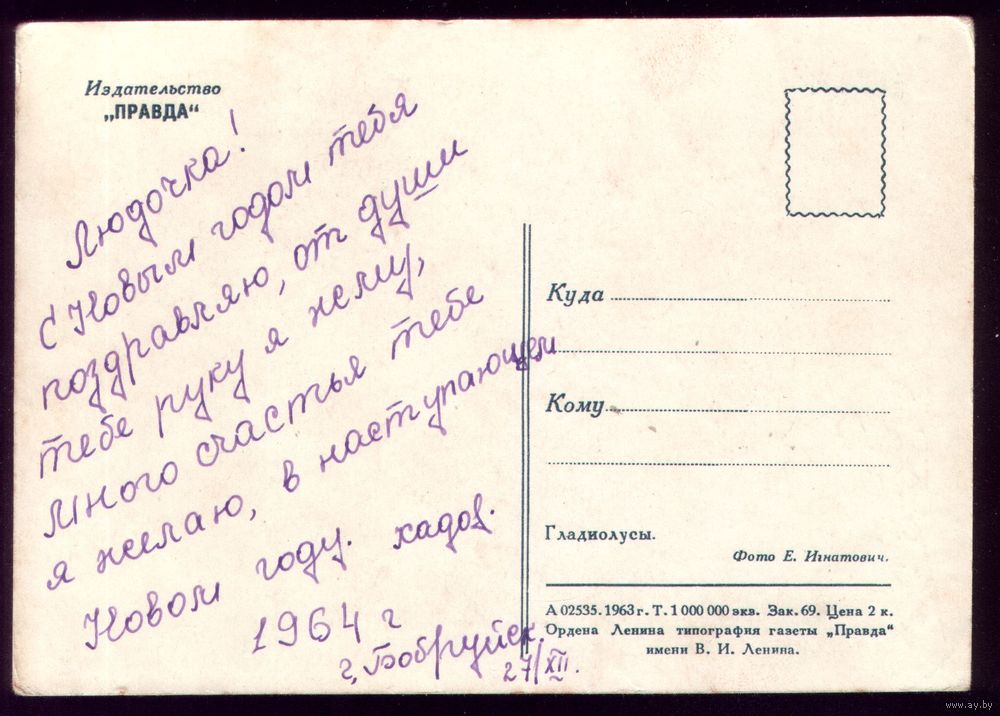 Издательство
„ПРАВДА“
Людочка!
С Новым годом тебя
поздравляю, от души
тебе руку я жму,
Много счастья тебе
я желаю, в наступающем
Новом году.
1964 г
г. Бобруйск.
27/XII.
Куда
Кому
Гладиолусы.
Фото Е. Игнатович.
А 02535. 1963 г. Т. 1 000 000 экв. Зак. 69. Цена 2 к.
Ордена Ленина типография газеты „Правда“
имени В. И. Ленина.
www.ay.by